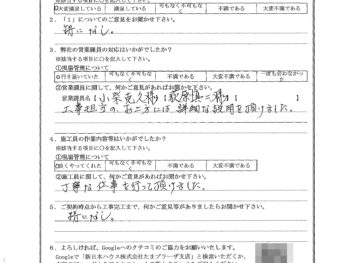 ○大変満足している 満足している 可もなく不可もなく 不満である 大変不満である
2. 「1」についてのご意見をお聞かせ下さい。
特になし。
3. 弊社の営業課員の対応はいかがでしたか？
※該当する項目に○を記入して下さい。
①現場管理について
○行き届いていた 可もなく不可もなく 不満である 大変不満である 一度も会わなかった
②営業課員に関して、何かご意見があればお聞かせ下さい。
営業課員名
工事担当の お二方には 詳細な説明を頂けました。
4. 施工員の作業内容等はいかがでしたか？
※該当する項目に○を記入して下さい。
①現場管理について
○良くやってくれた 可もなく不可もなく 不満である 大変不満である
②施工員に関して、何かご意見があればお聞かせ下さい。
丁寧な仕事を行って頂きました。
5. ご契約時点から工事完工まで、何かご意見等がありましたらお聞かせ下さい。
特になし。
6. よろしければ、Googleへのクチコミのご協力をお願いいたします。
Googleで「新日本ハウス株式会社たまプラーザ支店」と検索いただくか、